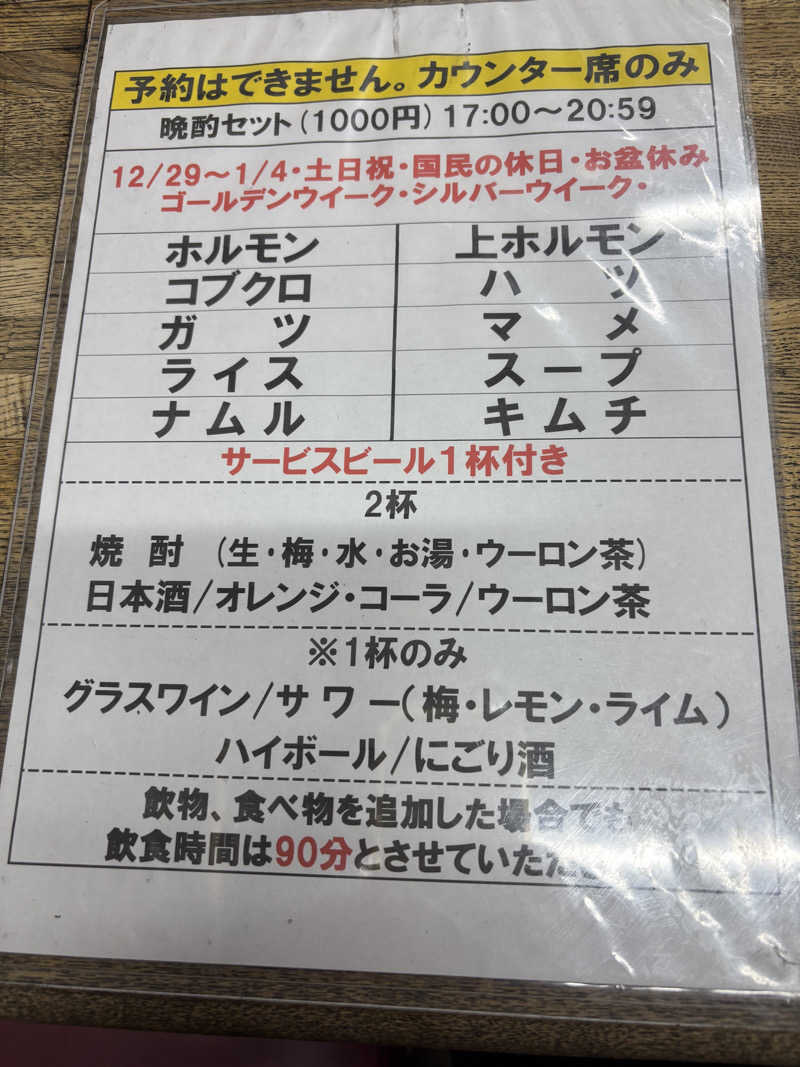 予約はできません。カウンター席のみ
晩酌セット(1000円)17:00〜20:59
12/29〜1/4・土日祝・国民の休日・お盆休み
ゴールデンウイーク・シルバーウイーク・
ホルモン 上ホルモン
コブクロ ハツ
ガツ マメ
ライス スープ
ナムル キムチ
サービスビール1杯付き
2杯
焼酎 (生・梅・水・お湯・ウーロン茶)
日本酒/オレンジ・コーラ/ウーロン茶
※1杯のみ
グラスワイン/サワー(梅・レモン・ライム)
ハイボール/にごり酒
飲物、食べ物を追加した場合でも
飲食時間は90分とさせていただ